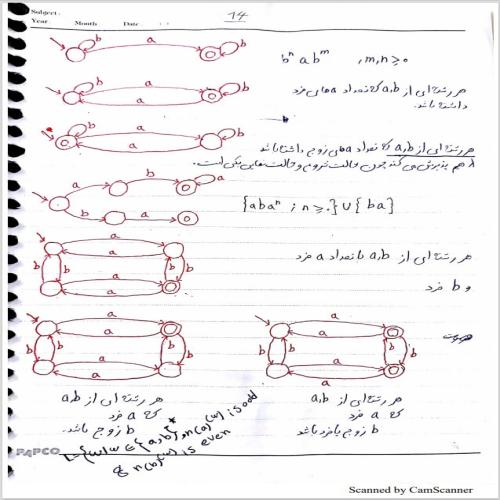 Subject:
Year Month Date
14
b a b
bⁿ a bᵐ , m,n ≥ 0
هر رشته‌ای از a,b که تعداد a های فرد
داشته باشد.
b a b
a
b a b
a
هر رشته‌ای از a,b که تعداد a های زوج داشته باشد
λ هم پذیرش می‌کند چون حالت شروع و حالت نهایی یکی است.
a b a
b a
{abaⁿ ; n ≥ 0} ∪ {ba}
a
a
b b b b
a
a
هر رشته‌ای از a,b با تعداد a فرد
و b فرد
a
a
b b b b
a
a
a
a
b b b b
a
a
هر رشته‌ای از a,b
که a فرد
b زوج باشد.
هر رشته‌ای از a,b
که a فرد
b زوج یا فرد باشد
L={w | w ∈ {a,b}*, n(a)(w) is odd
& n(b)(w) is even
PAPCO
Scanned by CamScanner